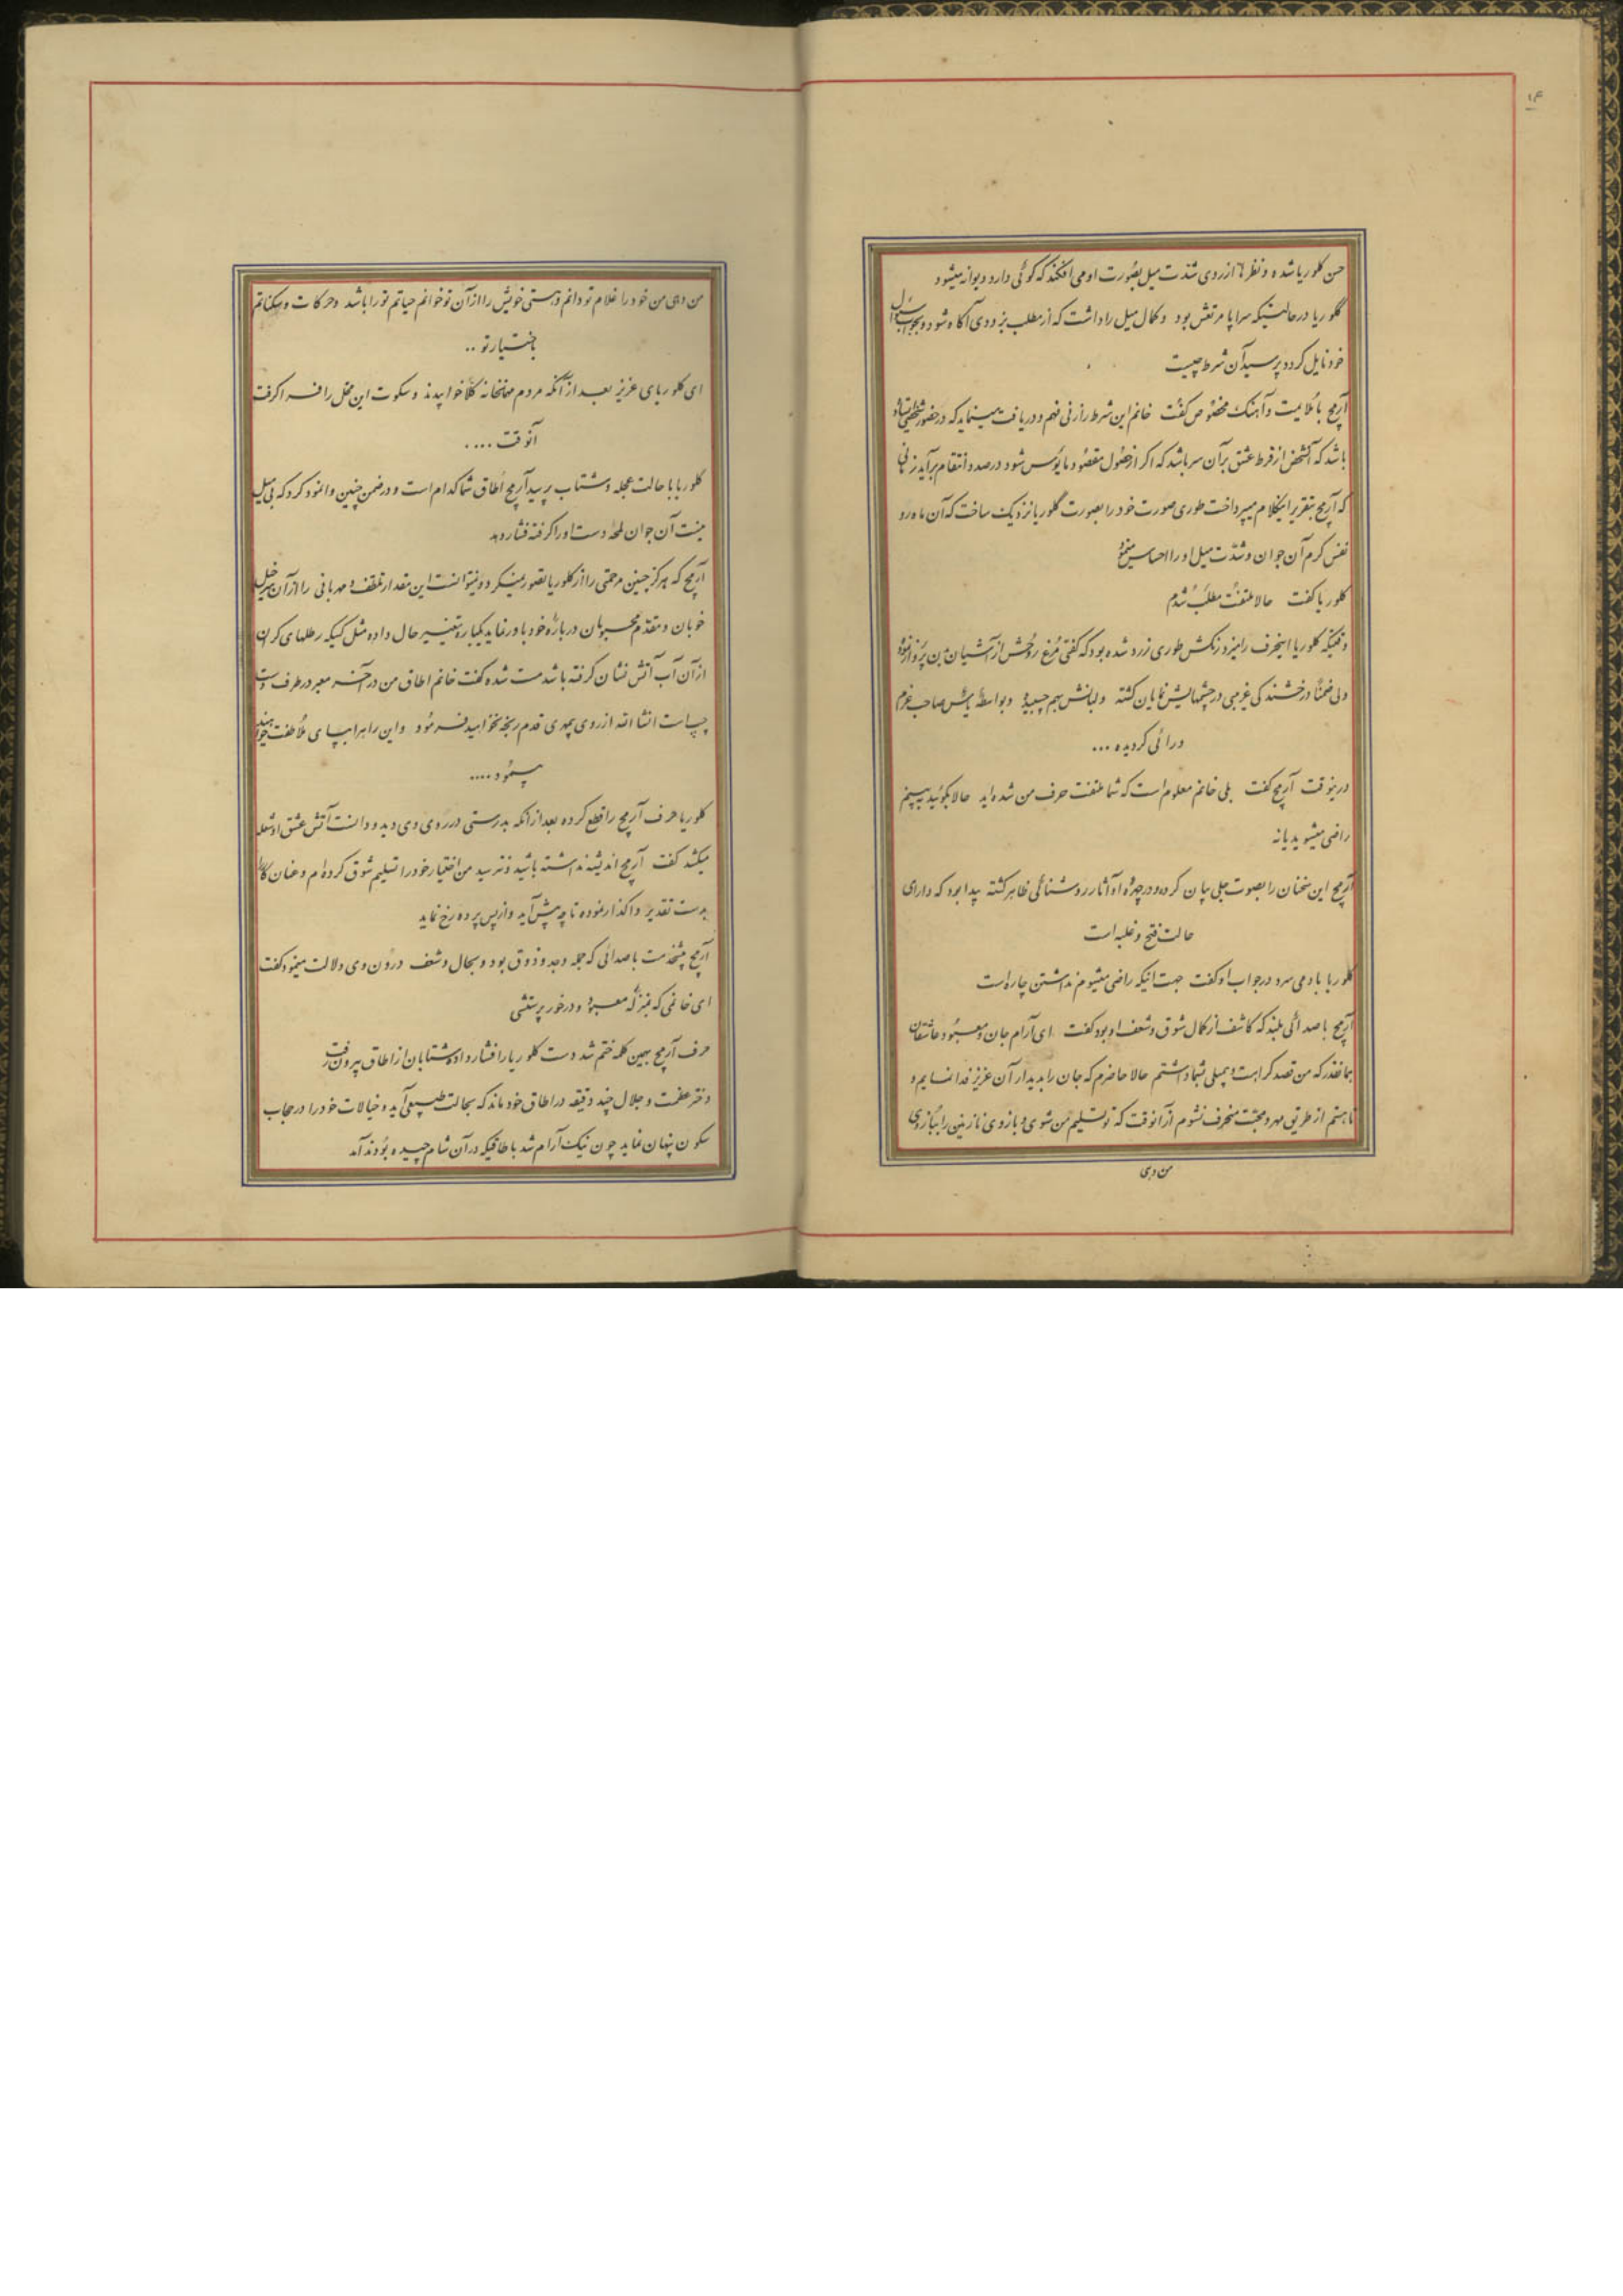 ۱۴
حسن کلوریا شده و نظرها از روی شدت میل بصورت او می افکند که کوئی دارد دیوانه میشود
گلوریا در حالتیکه سراپا مرتعش بود و کمال میل را داشت که از مطلب بزودی آگاه شود و بجواب سئوال
خود نایل کردد پرسید آن شرط چیست
آرمچ با ملایمت و آهنک مخصوص گفت خانم این شرط را زنی فهم و دریافت مینماید که در حضور شخصی ایستاده
باشد که آنشخص از فرط عشق بر آن سر باشد که اکر از حصول مقصود مایوس شود در صدد انتقام برآید زمانی
که آرمچ بتقریر اینکلام میپرداخت طوری صورت خود را بصورت گلوریا نزدیک ساخت که آن ماه رو
نفس کرم آن جوان و شدت میل او را احساس مینمود
کلوریا کفت حالا ملتفت مطلب شدم
وقتیکه کلوریا اینحرف را میزد رنکش طوری زرد شده بود که کفتی مرغ روحش از آشیان بدن پرواز نموده
ولی ضمناً درخشندکی غریبی در چشمهایش نمایان کشته و لبانش بهم چسبیده و بواسطه یأس صاحب عزم
و رائی کردیده ...
درینوقت آرمچ کفت بلی خانم معلوم است که شما ملتفت حرف من شده اید حالا بکوئید ببینم
راضی میشوید یا نه
آرمچ این سخنان را بصوت جلی بیان کرده و در چهره او آثار روشنائی ظاهر کشته پیدا بود که دارای
حالت فتح و غلبه است
کلوریا با دمی سرد در جواب او کفت جهت اینکه راضی میشوم نداشتن چاره است
آرمچ با صدائی بلند که کاشف از کمال شوق و شعف او بود کفت ای آرام جان و معبود عاشقان
بهمانقدر که من قصد کراهت و بیمیلی شما داشتم حالا حاضرم که جان را بدیدار آن عزیز فدا نمایم و
تا هستم از طریق مهر و محبت منحرف نشوم از آنوقت که تو تسلیم من شوی و بازوی نازنین را ببازوی
من دهی
من دهی من خود را غلام تو دانم و هستی خویش را از آن تو خوانم حیاتم تو را باشد و حرکات و سکناتم
باختیار تو ..
ای کلوریای عزیز بعد از آنکه مردم مهمانخانه کلاً خوابیدند و سکوت این محل را فرا کرفت
آنوقت ....
کلوریا با حالت عجله و شتاب پرسید آرمچ اطاق شما کدام است و در ضمن چنین وانمود کرد که بی میل
نیست آن جوان لمحه دست او را کرفته فشار دهد
آرمچ که هرکز چنین مرحمتی را از کلوریا تصور نمیکرد و نمیتوانست این مقدار تلطف و مهربانی را از آن سرخیل
خوبان و مقدم محبوبان درباره خود باور نماید یکباره تغییر حال داده مثل کسیکه رطلهای کران
از آن آب آتش نشان کرفته باشد مست شده کفت خانم اطاق من در آخر معبر در طرف دست
چپ است انشاء الله از روی بیمهری قدم رنجه نخواهید فرمود و این راه را بپای ملاطفت خواهید
پیمود ....
کلوریا حرف آرمچ را قطع کرده بعد از آنکه بدرستی در روی وی دید و دانست آتش عشق او شعله
میکشد کفت آرمچ اندیشه نداشته باشید و نترسید من اختیار خود را تسلیم شوق کرده ام و عنان کار را
بدست تقدیر واکذار نموده تا چه پیش آید و از پس پرده رخ نماید
آرمچ پیشخدمت با صدائی که جمله وجد و ذوق بود و بحال و شعف درون وی دلالت مینمود کفت
ای خانمی که بمنزله معبود و در خور پرستشی
حرف آرمچ بهمین کلمه ختم شد دست کلوریا را فشار داده شتابان از اطاق بیرون رفت
دختر عظمت و جلال چند دقیقه در اطاق خود ماند که بحالت طبیعی آید و خیالات خود را در حجاب
سکون پنهان نماید چون نیک آرام شد باطاقیکه در آن شام چیده بودند آمد